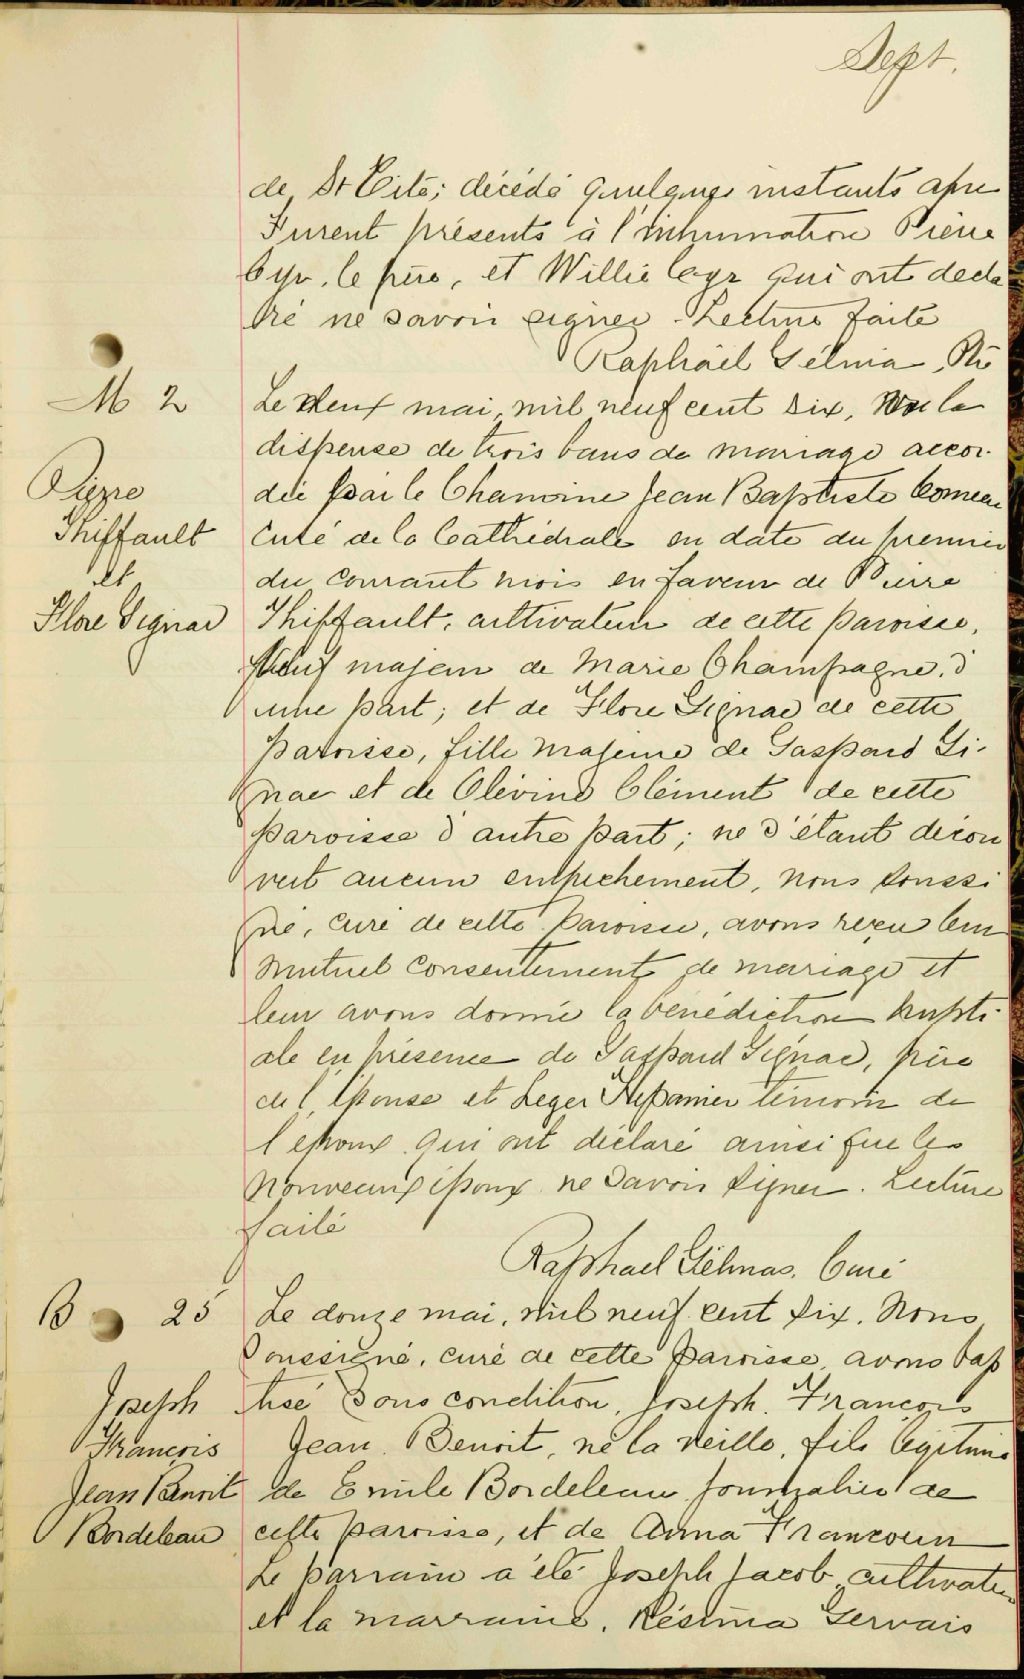 Sept.
de St Tite; décédé quelques instants apre
Furent présents à l'inhumation Pierre
Cyr, le père, et Willie Cyr qui ont decla
ré ne savoir signer. Lecture faite
Raphaël Gélina, Ptr
M 2
Pierre
Thiffault
et
Flore Gignac
Le deux mai, mil neuf cent six, vu la
dispense de trois bans de mariage accor-
dée par le Chanoine Jean Baptiste Comeau
Curé de la Cathédrale en date du premier
du courant mois en faveur de Pierre
Thiffault, cultivateur de cette paroisse,
veuf majeur de Marie Champagne, d'
une part; et de Flore Gignac de cette
paroisse, fille majeure de Gaspard Gi-
gnac et de Olévine Clément de cette
paroisse d'autre part; ne s'étant décou
vert aucun empechement, nous soussi
gné, curé de cette paroisse, avons reçu leur
mutuel consentement de mariage et
leur avons donné la bénédiction nupti
ale en présence de Gaspard Gignac, père
de l'épouse et Leger Trépanier témoin de
l'époux qui ont déclaré ainsi que les
nouveaux époux ne savoir signer. Lecture
faite
Raphael Gélinas. Curé
B 25
Joseph
François
Jean Benoit
Bordeleau
Le douze mai, mil neuf cent six. Nous
soussigné, curé de cette paroisse, avons bap
tisé sous condition, Joseph. François
Jean. Benoit, né la veille, fils légitime
de Emile Bordeleau journalier de
cette paroisse, et de Anna Francoeur
Le parrain a été Joseph Jacob, cultivateur
et la marraine, Résima Gervais